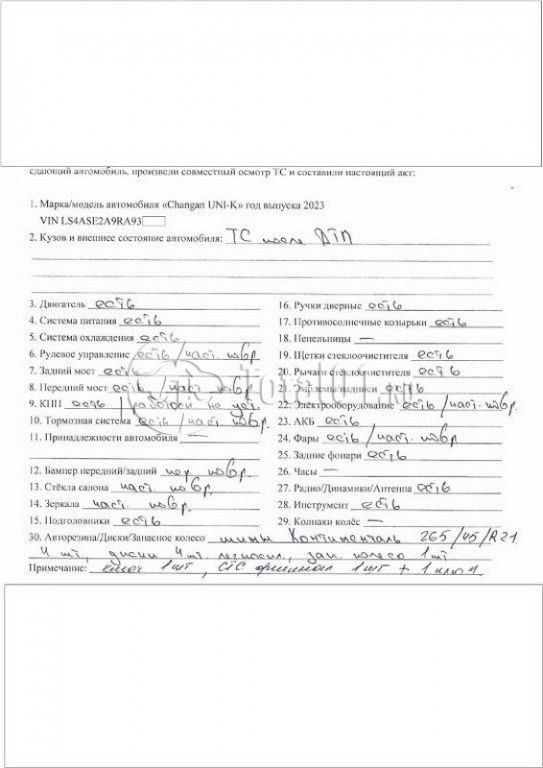 сдающий автомобиль, произвели совместный осмотр ТС и составили настоящий акт:
1. Марка/модель автомобиля «Changan UNI-K» год выпуска 2023
VIN LS4ASE2A9RA93
2. Кузов и внешнее состояние автомобиля: ТС после ДТП
3. Двигатель есть
4. Система питания есть
5. Система охлаждения есть
6. Рулевое управление есть / част. повр.
7. Задний мост есть
8. Передний мост есть / част. повр.
9. КПП есть / рабочая не уст.
10. Тормозная система есть / част. повр.
11. Принадлежности автомобиля —
12. Бампер передний/задний пер. повр.
13. Стёкла салона част. повр.
14. Зеркала част. повр.
15. Подголовники есть
16. Ручки дверные есть
17. Противосолнечные козырьки есть
18. Пепельницы —
19. Щетки стеклоочистителя есть
20. Рычаги стеклоочистителя есть
21. Эмблемы/надписи есть
22. Электрооборудование есть / част. повр.
23. АКБ есть
24. Фары есть / част. повр.
25. Задние фонари есть
26. Часы —
27. Радио/Динамики/Антенна есть
28. Инструмент есть
29. Колпаки колёс —
30. Авторезина/Диски/Запасное колесо шины Континенталь 265/45/R21
4 шт, диски 4 шт. легкоспл., зап. колесо 1 шт
Примечание: ключ 1 шт, СТС оригинал 1 шт + 1 ключ